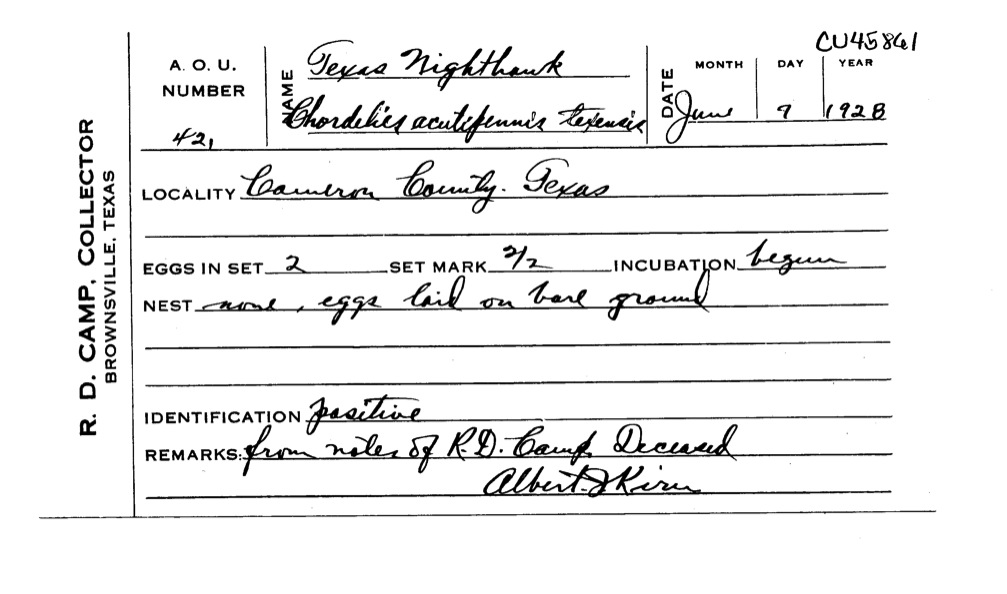 CU45861
A. O. U. NUMBER 421
NAME Texas Nighthawk
Chordeiles acutipennis texensis
DATE MONTH DAY YEAR
June 9 1928
R. D. CAMP, COLLECTOR
BROWNSVILLE, TEXAS
LOCALITY Cameron County. Texas
EGGS IN SET 2 SET MARK 2/2 INCUBATION begun
NEST none, eggs laid on bare ground
IDENTIFICATION positive
REMARKS: from notes of R.D. Camp Deceased
Albert J Kirn